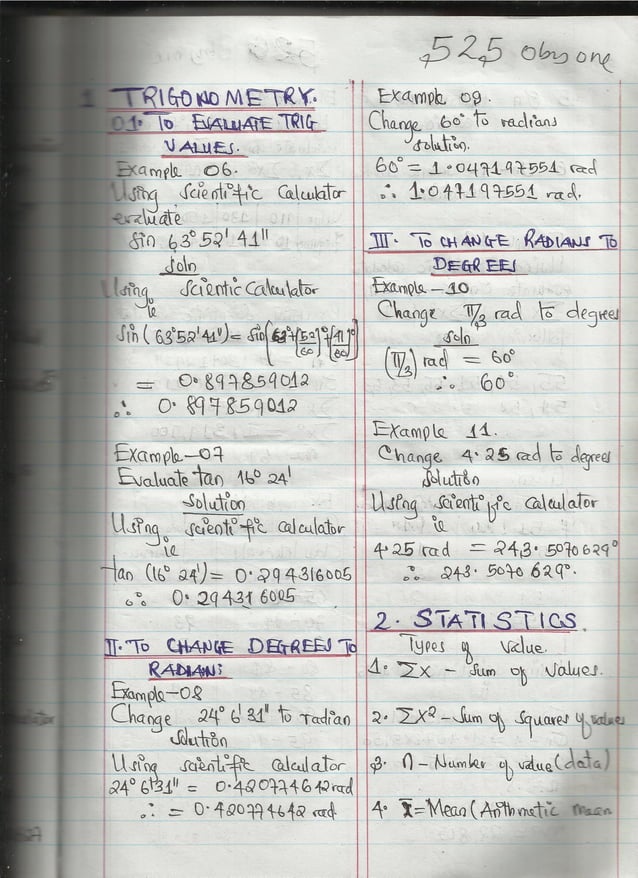 525 Obyone
1 TRIGONOMETRY.
01. TO EVALUATE TRIG
VALUES.
Example 06.
Using Scientific Calculator
evaluate
Sin 63° 52' 41"
Soln
Using Scientic Calculator
ie
Sin (63°52'41") = Sin[63°+[52/60]°+[41/60]°]
= 0.897859012
∴ 0.897859012
Example-07
Evaluate tan 16° 24'
Solution
Using scientific calculator
ie
tan (16° 24') = 0.294316005
∴ 0.294316005
II. TO CHANGE DEGREES TO
RADIAN:
Example-08
Change 24° 6' 31" to radian
Solution
Using scientific calculator
24° 6'31" = 0.420774642 rad
∴ = 0.420774642 rad
Example 09.
Change 60° to radians
Solution.
60° = 1.047197551 rad
∴ 1.047197551 rad.
III. TO CHANGE RADIANS TO
DEGREES
Example-10
Change π/3 rad to degrees
Soln
(π/3) rad = 60°
∴ 60°
Example 11.
Change 4.25 rad to degrees
Solution
Using scientific calculator
ie
4.25 rad = 243.5070629°
∴ 243.5070629°.
2. STATISTICS
Types of value.
1. ΣX - Sum of values.
2. ΣX² - Sum of Squares of values
3. n - Number of value (data)
4. x̄ = Mean (Arithmatic mean